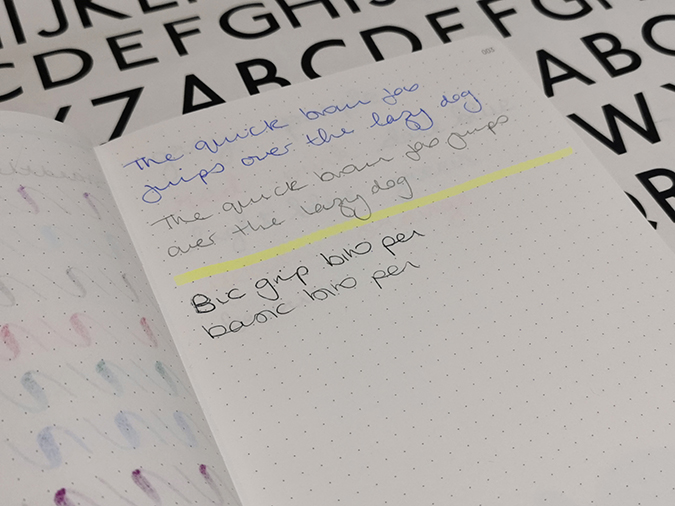 IJKL
GHIJ
CDEFGH
ABCD
ABC
WXY
The quick brown fox
jumps over the lazy dog
The quick brown fox jumps
over the lazy dog
Bic grip biro pen
basic biro pen